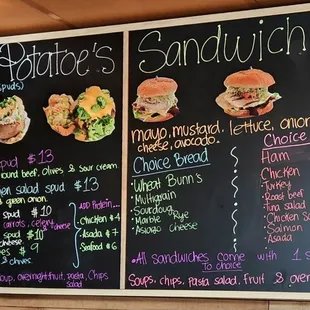 Potatoe's
spuds)
spud $13
round beef, olives & sour cream
salad spud $13
green onion.
spud $10
carrots, celery
& cheese
spud $10
cheese
es $9
& chives
Add Protein
Chicken $4
Asada $7
Seafood $6
soup, overnight fruit, pasta, chips
salad
Sandwich
mayo, mustard, lettuce, onion
cheese, avocado.
Choice Bread
Wheat Bunn's
Multigrain
Sourdough
Marble Rye
Asiago cheese
Choice
Ham
Chicken
Turkey
Roast beef
Tuna salad
Chicken Sa
Salmon
Asada
All sandwiches come with 1 s
to choice
Soups, chips, pasta salad, fruit & over